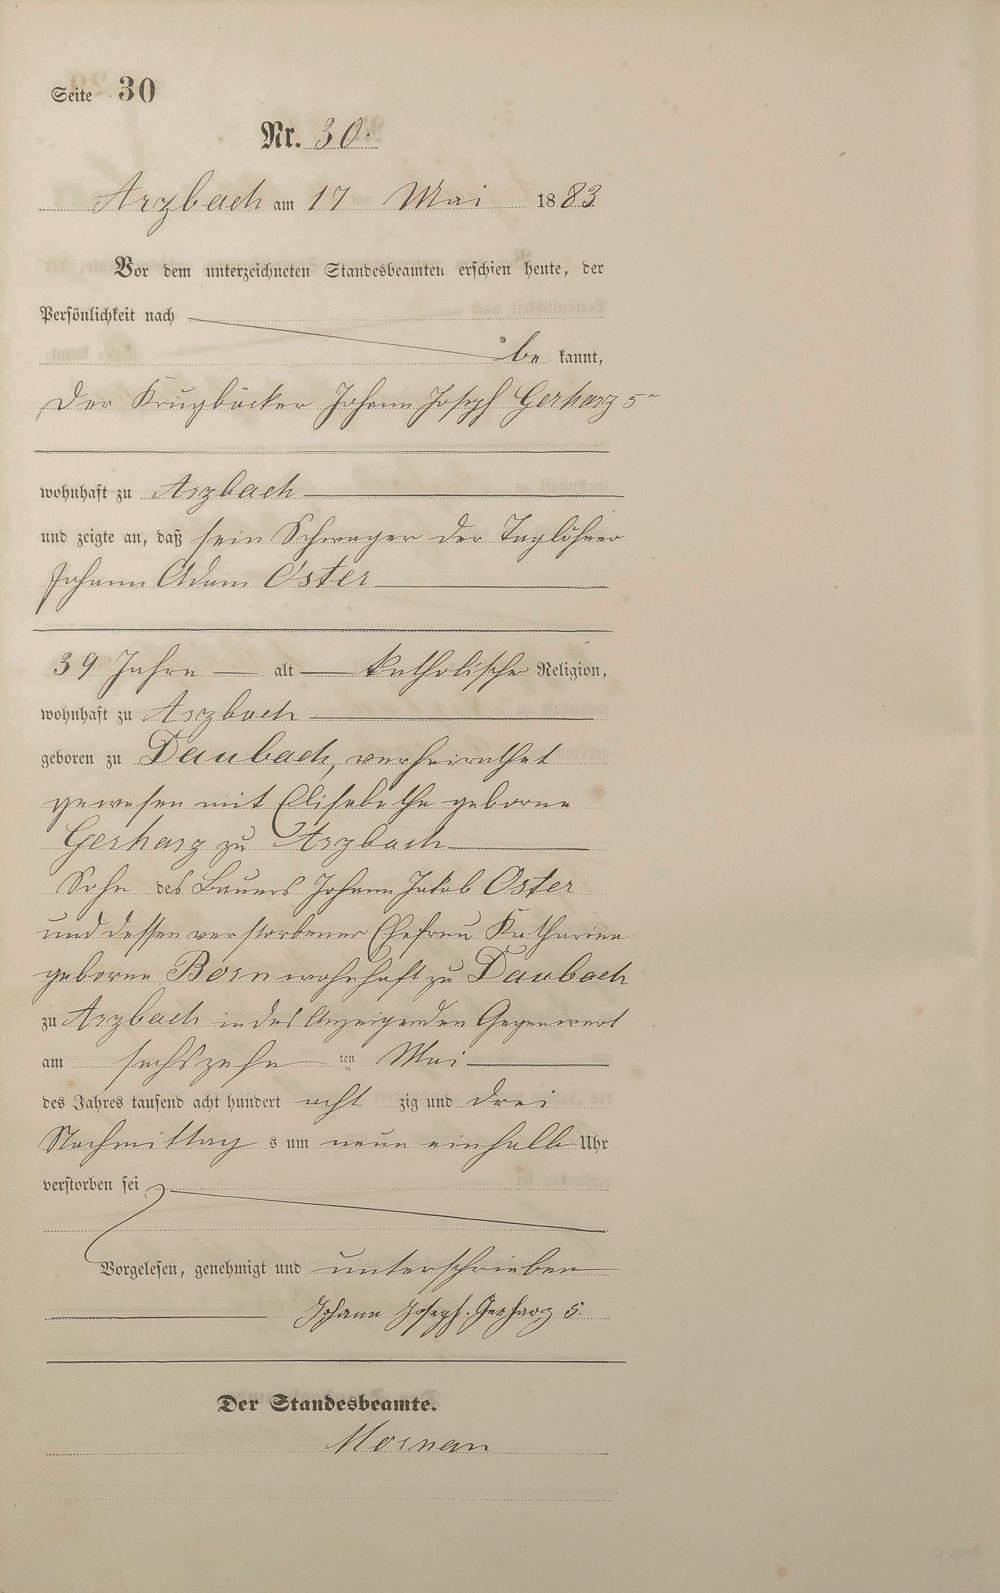 Seite 30
Nr. 30.
Arzbach am 17 Mai 1883
Vor dem unterzeichneten Standesbeamten erschien heute, der
Persönlichkeit nach
be kannt,
der Krugbäcker Johann Joseph Gerharz 5r
wohnhaft zu Arzbach
und zeigte an, daß sein Schwager der Taglöhner
Johann Adam Oster
39 Jahre alt katholischer Religion,
wohnhaft zu Arzbach
geboren zu Daubach, verheirathet
gewesen mit Elisabetha geborne
Gerharz zu Arzbach
Sohn des Bauers Johann Jakob Oster
und dessen verstorbener Ehefrau Katharina
geborne Born wohnhaft zu Daubach
zu Arzbach in des Anzeigenden Gegenwart
am sechszehn ten Mai
des Jahres tausend acht hundert acht zig und drei
Nachmittag s um neun einhalb Uhr
verstorben sei
Vorgelesen, genehmigt und unterschrieben
Johann Joseph Gerharz 5.
Der Standesbeamte.